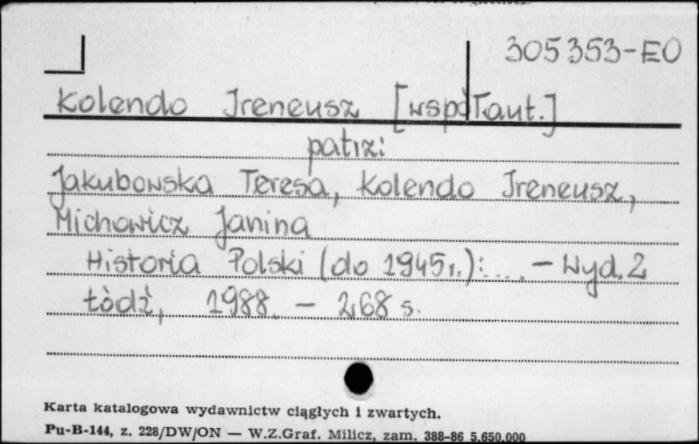 305353-EO
Kolendo Ireneusz [współaut.]
patrz:
Jakubowska Teresa, Kolendo Ireneusz,
Michowicz Janina
Historia Polski (do 1945r.): ... — Wyd. 2
Łódź, 1988. — 268 s.
Karta katalogowa wydawnictw ciągłych i zwartych.
Pu-B-144, z. 228/DW/ON — W.Z.Graf. Milicz, zam. 388-86 5.650.000